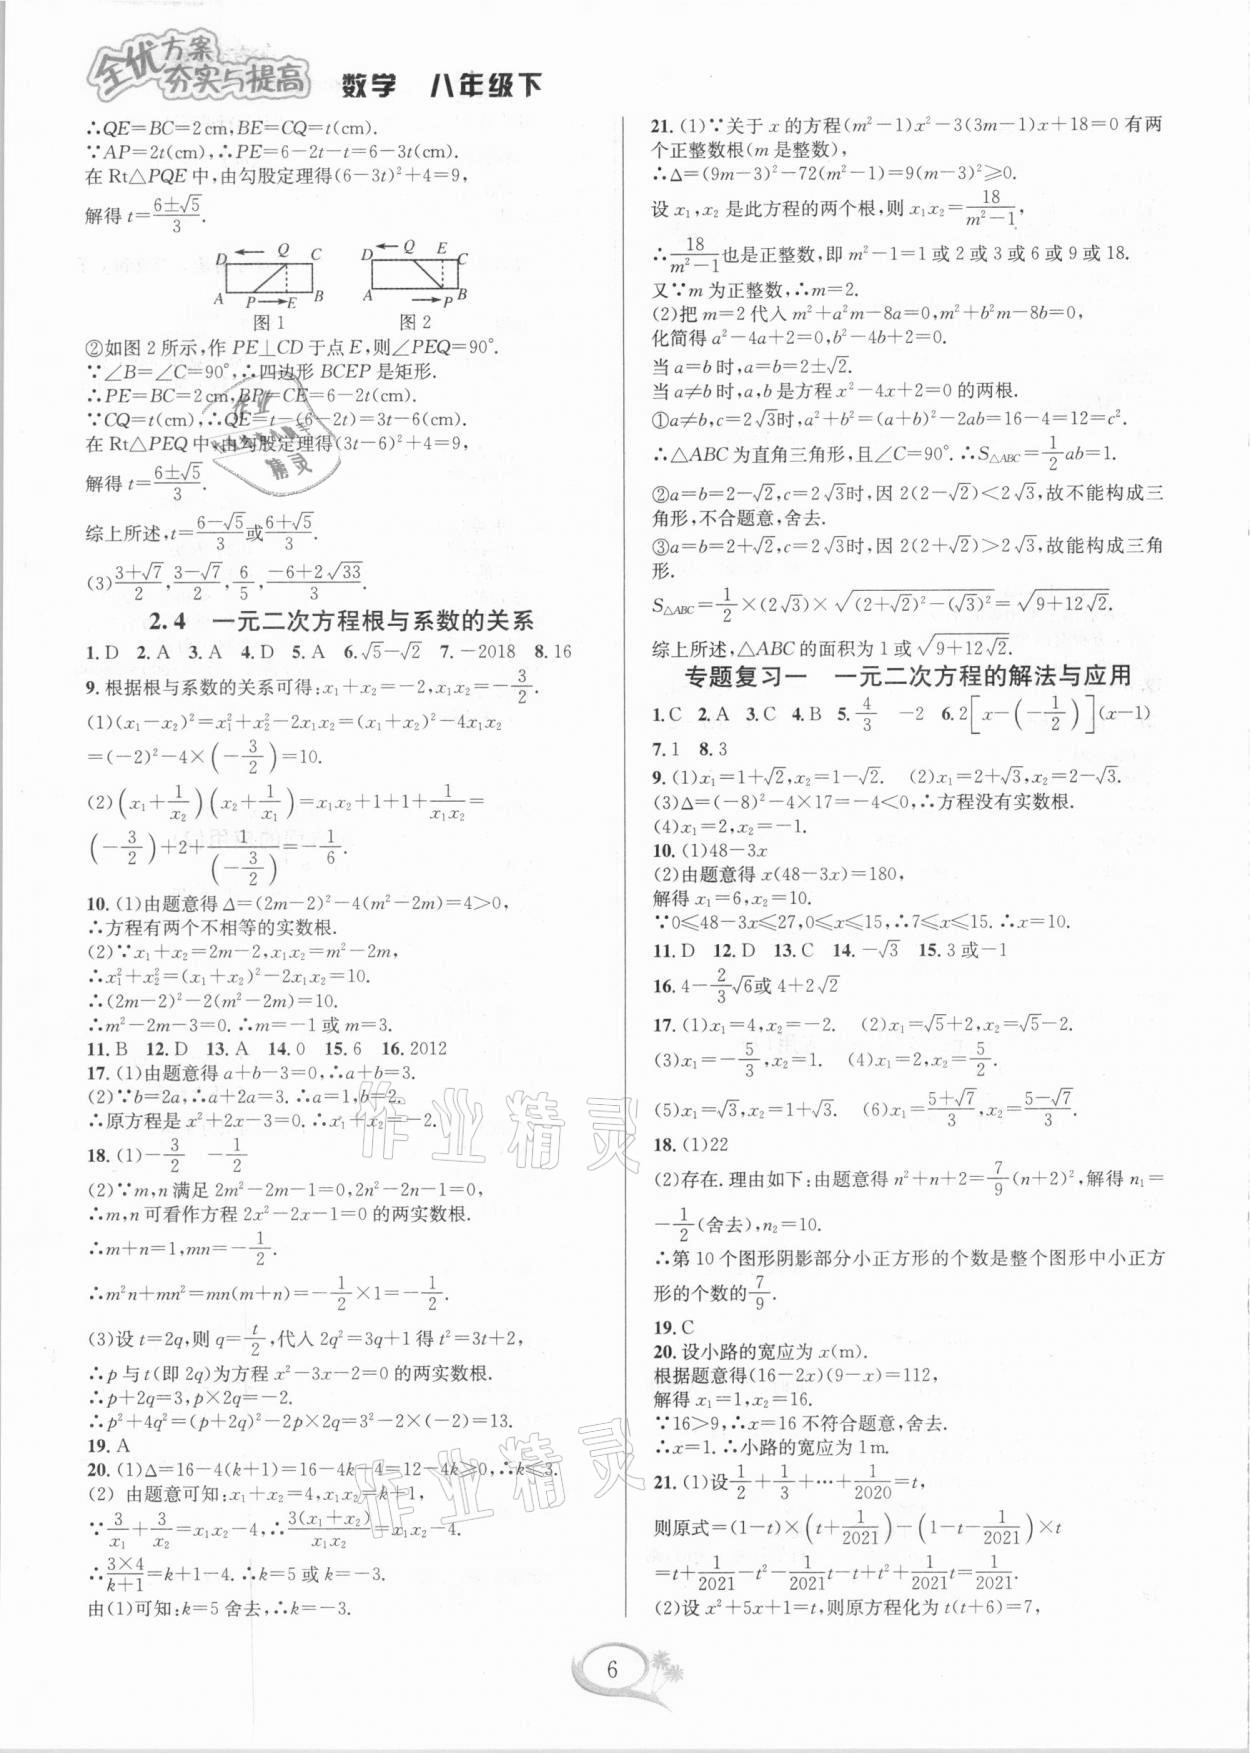 全优方案
夯实与提高
数学 八年级下
∴QE=BC=2 cm,BE=CQ=t(cm).
∵AP=2t(cm),∴PE=6-2t-t=6-3t(cm).
在 Rt△PQE 中,由勾股定理得(6-3t)²+4=9,
解得 t=(6±√5)/3.
D Q C A P E B
图 1
D Q E C A P B
图 2
②如图 2 所示,作 PE⊥CD 于点 E,则∠PEQ=90°.
∵∠B=∠C=90°,∴四边形 BCEP 是矩形.
∴PE=BC=2 cm,BP=CE=6-2t.
∵CQ=t(cm),∴QE=t-(6-2t)=3t-6(cm).
在 Rt△PEQ 中,由勾股定理得(3t-6)²+4=9,
解得 t=(6±√5)/3.
综上所述,t=(6-√5)/3或(6+√5)/3.
(3)(3+√7)/2,(3-√7)/2,6/5,(-6+2√33)/3.
2.4 一元二次方程根与系数的关系
1. D 2. A 3. A 4. D 5. A 6. √5-√2 7. -2018 8. 16
9. 根据根与系数的关系可得:x₁+x₂=-2,x₁x₂=-3/2.
(1)(x₁-x₂)²=x₁²+x₂²-2x₁x₂=(x₁+x₂)²-4x₁x₂
=(-2)²-4×(-3/2)=10.
(2)(x₁+1/x₂)(x₂+1/x₁)=x₁x₂+1+1+1/(x₁x₂)=
(-3/2)+2+1/(-3/2)=-1/6.
10. (1)由题意得 Δ=(2m-2)²-4(m²-2m)=4>0,
∴方程有两个不相等的实数根.
(2)∵x₁+x₂=2m-2,x₁x₂=m²-2m,
∴x₁²+x₂²=(x₁+x₂)²-2x₁x₂=10.
∴(2m-2)²-2(m²-2m)=10.
∴m²-2m-3=0.∴m=-1 或 m=3.
11. B 12. D 13. A 14. 0 15. 6 16. 2012
17. (1)由题意得 a+b-3=0,∴a+b=3.
(2)∵b=2a,∴a+2a=3.∴a=1,b=2.
∴原方程是 x²+2x-3=0.∴x₁+x₂=-2.
18. (1)-3/2 -1/2
(2)∵m,n 满足 2m²-2m-1=0,2n²-2n-1=0,
∴m,n 可看作方程 2x²-2x-1=0 的两实数根.
∴m+n=1,mn=-1/2.
∴m²n+mn²=mn(m+n)=-1/2×1=-1/2.
(3)设 t=2q,则 q=t/2,代入 2q²=3q+1 得 t²=3t+2,
∴p 与 t(即 2q)为方程 x²-3x-2=0 的两实数根.
∴p+2q=3,p×2q=-2.
∴p²+4q²=(p+2q)²-2p×2q=3²-2×(-2)=13.
19. A
20. (1)Δ=16-4(k+1)=16-4k-4=12-4k≥0,∴k≤3.
(2) 由题意可知:x₁+x₂=4,x₁x₂=k+1,
∵3/x₁+3/x₂=x₁x₂-4,∴3(x₁+x₂)/(x₁x₂)=x₁x₂-4.
∴(3×4)/(k+1)=k+1-4.∴k=5 或 k=-3.
由(1)可知:k=5 舍去,∴k=-3.
21. (1)∵关于 x 的方程(m²-1)x²-3(3m-1)x+18=0 有两
个正整数根(m 是整数),
∴Δ=(9m-3)²-72(m²-1)=9(m-3)²≥0.
设 x₁,x₂ 是此方程的两个根,则 x₁x₂=18/(m²-1),
∴18/(m²-1)也是正整数,即 m²-1=1 或 2 或 3 或 6 或 9 或 18.
又∵m 为正整数,∴m=2.
(2)把 m=2 代入 m²+a²m-8a=0,m²+b²m-8b=0,
化简得 a²-4a+2=0,b²-4b+2=0.
当 a=b 时,a=b=2±√2.
当 a≠b 时,a,b 是方程 x²-4x+2=0 的两根.
①a≠b,c=2√3时,a²+b²=(a+b)²-2ab=16-4=12=c².
∴△ABC 为直角三角形,且∠C=90°.∴S△ABC=1/2ab=1.
②a=b=2-√2,c=2√3时,因 2(2-√2)<2√3,故不能构成三
角形,不合题意,舍去.
③a=b=2+√2,c=2√3时,因 2(2+√2)>2√3,故能构成三角
形.
S△ABC=1/2×(2√3)×√((2+√2)²-(√3)²)=√(9+12√2).
综上所述,△ABC 的面积为 1 或√(9+12√2).
专题复习一 一元二次方程的解法与应用
1. C 2. A 3. C 4. B 5. 4/3 -2 6. 2[x-(-1/2)](x-1)
7. 1 8. 3
9. (1)x₁=1+√2,x₂=1-√2. (2)x₁=2+√3,x₂=2-√3.
(3)Δ=(-8)²-4×17=-4<0,∴方程没有实数根.
(4)x₁=2,x₂=-1.
10. (1)48-3x
(2)由题意得 x(48-3x)=180,
解得 x₁=6,x₂=10.
∵0≤48-3x≤27,0≤x≤15,∴7≤x≤15.∴x=10.
11. D 12. D 13. C 14. -√3 15. 3 或-1
16. 4-2/3√6或 4+2√2
17. (1)x₁=4,x₂=-2. (2)x₁=√5+2,x₂=√5-2.
(3)x₁=-5/3,x₂=1. (4)x₁=2,x₂=5/2.
(5)x₁=√3,x₂=1+√3. (6)x₁=(5+√7)/3,x₂=(5-√7)/3.
18. (1)22
(2)存在.理由如下:由题意得 n²+n+2=7/9(n+2)²,解得 n₁=
-1/2(舍去),n₂=10.
∴第 10 个图形阴影部分小正方形的个数是整个图形中小正方
形的个数的7/9.
19. C
20. 设小路的宽应为 x(m).
根据题意得(16-2x)(9-x)=112,
解得 x₁=1,x₂=16.
∵16>9,∴x=16 不符合题意,舍去.
∴x=1.∴小路的宽应为 1 m.
21. (1)设1/2+1/3+…+1/2020=t,
则原式=(1-t)×(t+1/2021)-(1-t-1/2021)×t
=t+1/2021-t²-1/2021t-t+t²+1/2021t=1/2021.
(2)设 x²+5x+1=t,则原方程化为 t(t+6)=7,
6
作业精灵
作业精灵
作业
精灵